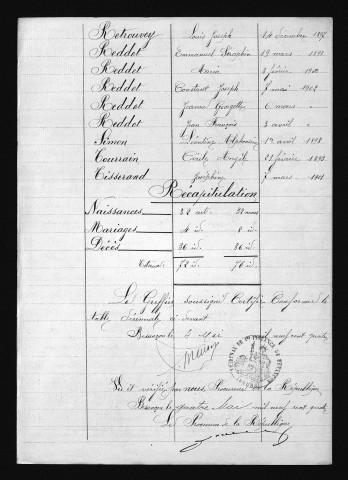 Retrouvey Louis Joseph 14 Décembre 1897
Reddet Emmanuel Séraphin 19 mars 1898
Reddet Maria 3 février 1900
Reddet Constant Joseph 7 mai 1902
Reddet Jeanne 6 mars "
Reddet Jean François 3 avril "
Simon Léontine Alphonsine 1er avril 1898
Tourrain Cécile 23 février 1893
Tisserand Joséphine 7 mars 1901
Récapitulation
Naissances
Mariages 4 id. 8 id.
Décès 36 id. 36 id.
Totaux 72 id. 76 id.
Le Greffier soussigné Certifie Conforme la
table Décennale ci-devant
Besançon le 4 Mai mil neuf cent quatre
Vu et vérifié par nous Procureur de la République
Besançon le quatre Mai mil neuf cent quatre
Le Procureur de la République